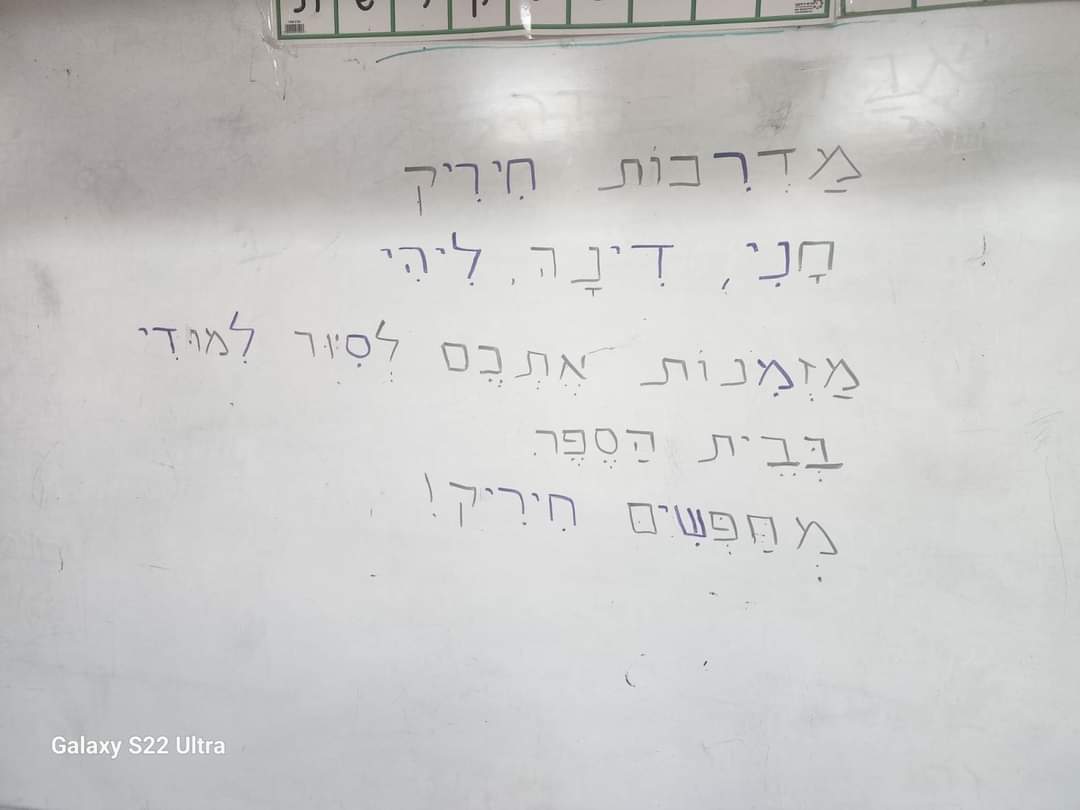 מַדְרִכוֹת חִירִיק
חָנִי, דִינָה, לִיהִי
מַזְמִנוֹת אֶתְכֶם לְסִיּוּר לִמוּדִי
בְּבֵית הַסֵפֶר.
מְחַפְּשִׂים חִירִיק!
Galaxy S22 Ultra